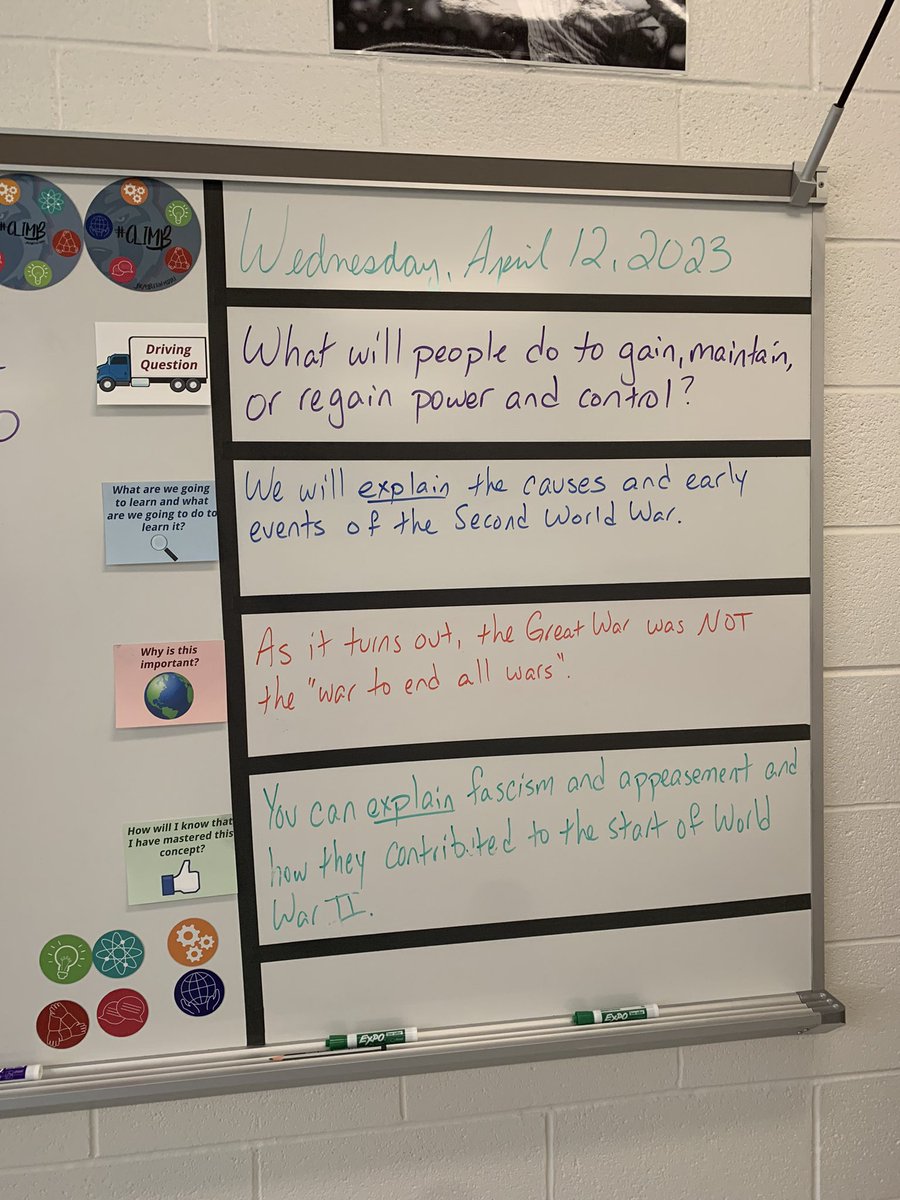 #CLIMB
#CLIMB
Wednesday, April 12, 2023
Driving
Question
What will people do to gain, maintain,
or regain power and control?
What are we going
to learn and what
are we going to do to
learn it?
We will explain the causes and early
events of the Second World War.
Why is this
important?
As it turns out, the Great War was NOT
the "war to end all wars".
How will I know that
I have mastered this
concept?
You can explain fascism and appeasement and
how they contributed to the start of World
War II.
EXPO
EXPO